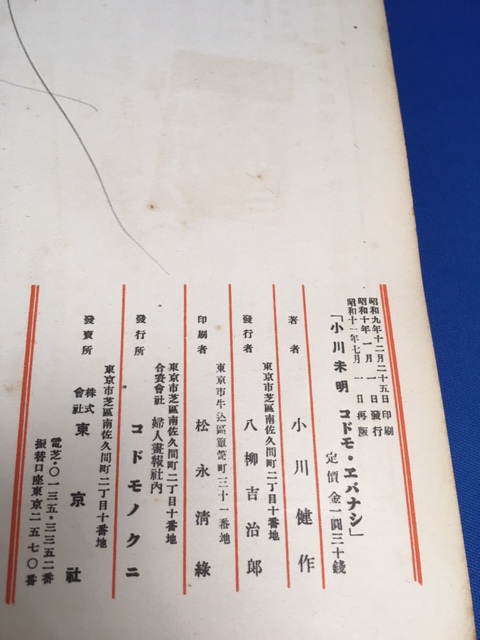 昭和九年十二月二十五日印刷
昭和十年一月一日發行
昭和十一年七月一日再版
「小川未明コドモ・エバナシ」
定價金一圓三十錢
著者 小川健作
東京市芝區南佐久間町二丁目十番地
發行者 八柳吉治郎
東京市牛込區簞笥町三十一番地
印刷者 松永清綠
東京市芝區南佐久間町二丁目十番地
合資會社 婦人畫報社內
發行所 コドモノクニ
東京市芝區南佐久間町二丁目十番地
發賣所 株式會社 東京社
電芝・〇一三五・三三五二番
振替口座東京二五七〇番